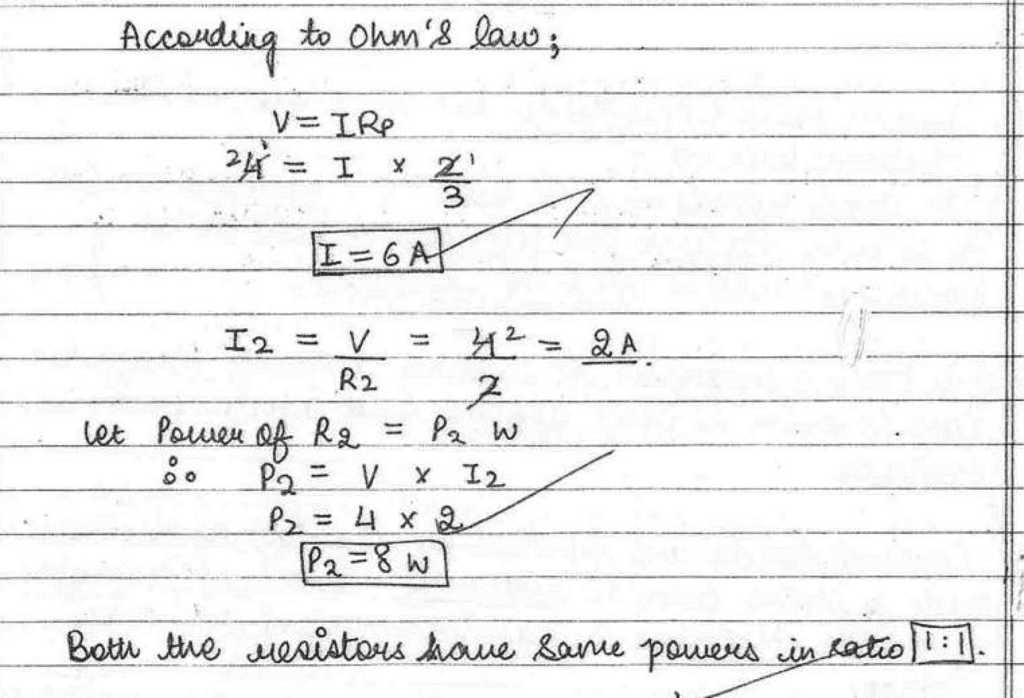 According to Ohm's law;
V = IRp
²4¹ = I × 2¹/3
I = 6 A
I2 = V/R2 = 4²/2 = 2A.
let Power of R2 = P2 W
∴ P2 = V × I2
P2 = 4 × 2
P2 = 8 W
Both the resistors have same powers in ratio 1:1.